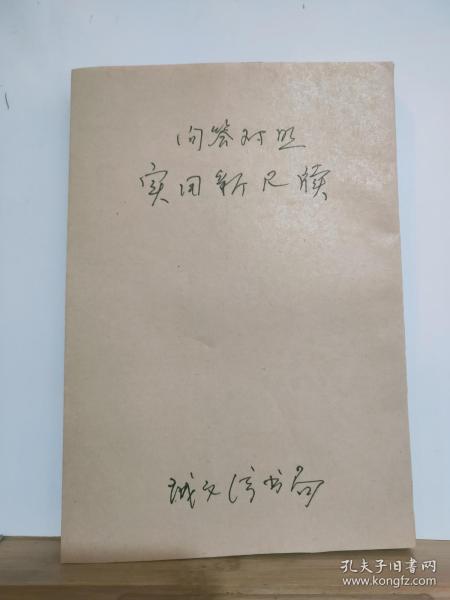 问答对照
实用新尺牍
诚文信书局
孔夫子旧书网
www.kongfz.com